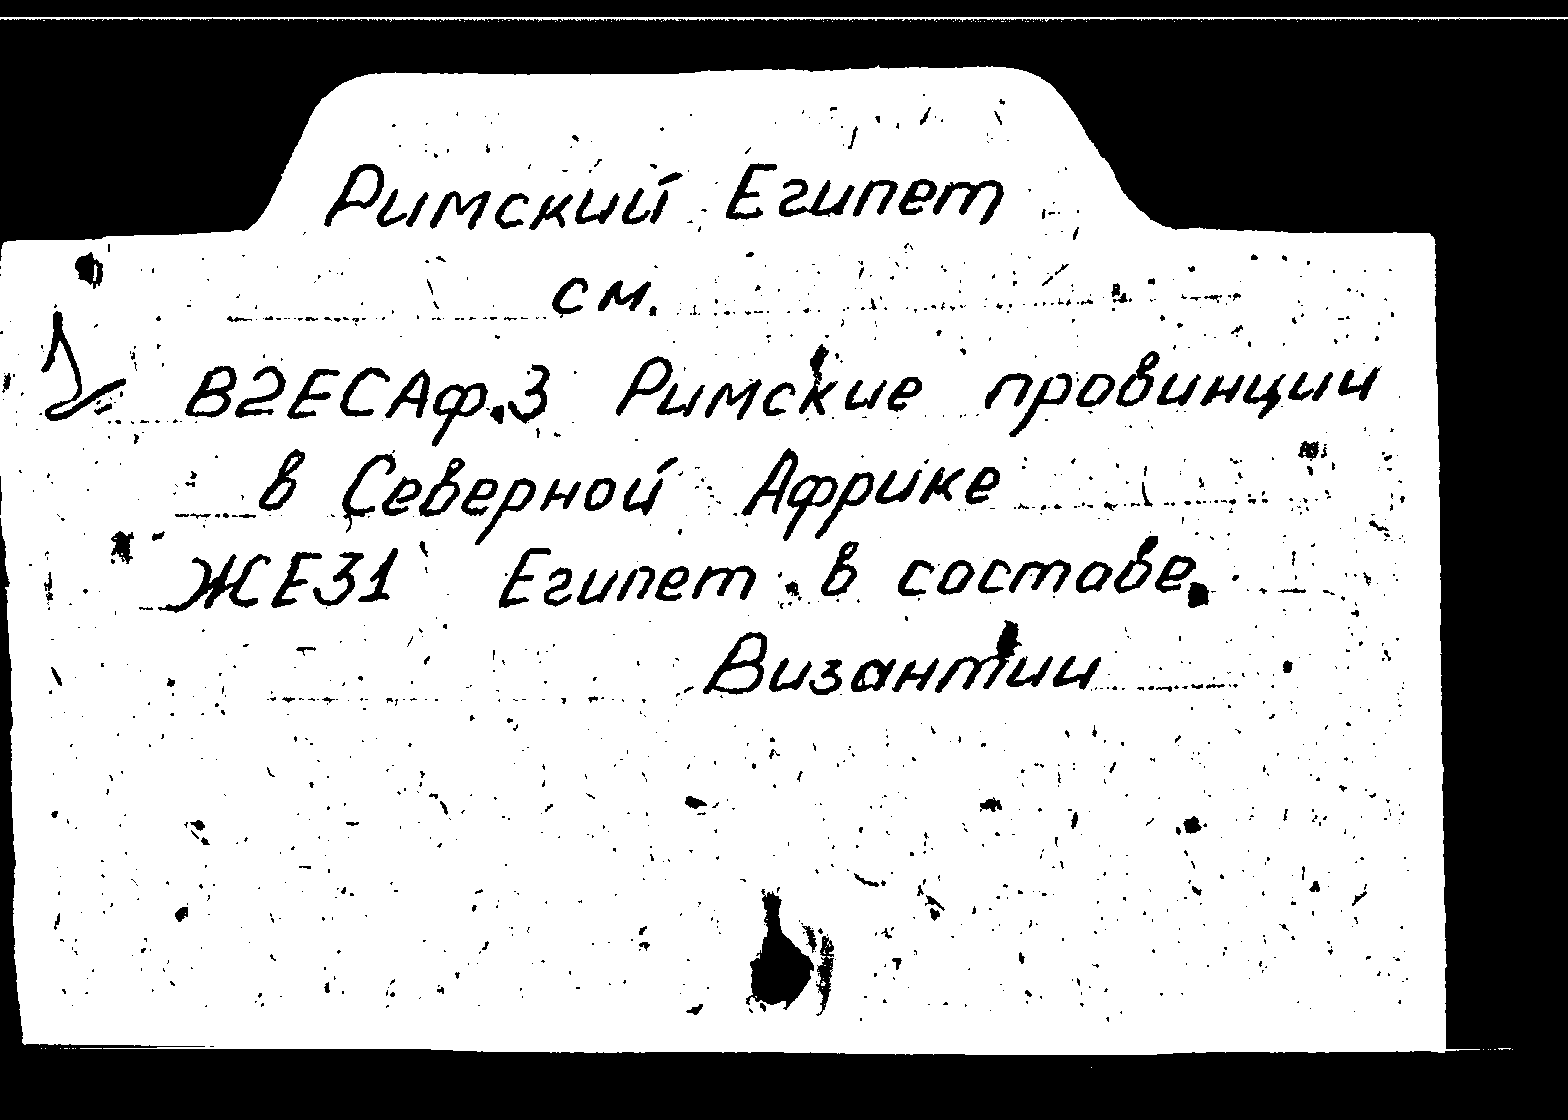 Римский Египет
см.
В2ЕСАф.3 Римские провинции
в Северной Африке
ЖЕ31 Египет в составе
Византии